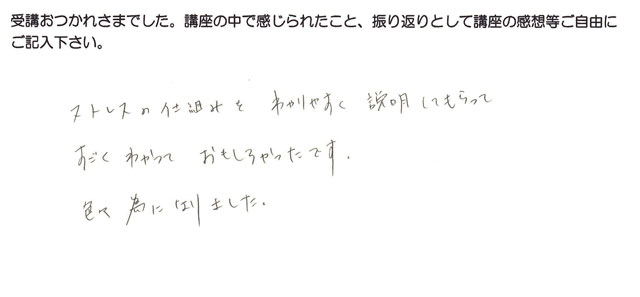 受講おつかれさまでした。講座の中で感じられたこと、振り返りとして講座の感想等ご自由に
ご記入下さい。
ストレスの仕組みを わかりやすく 説明してもらって
すごく わかって おもしろかったです.
色々 為になりました.